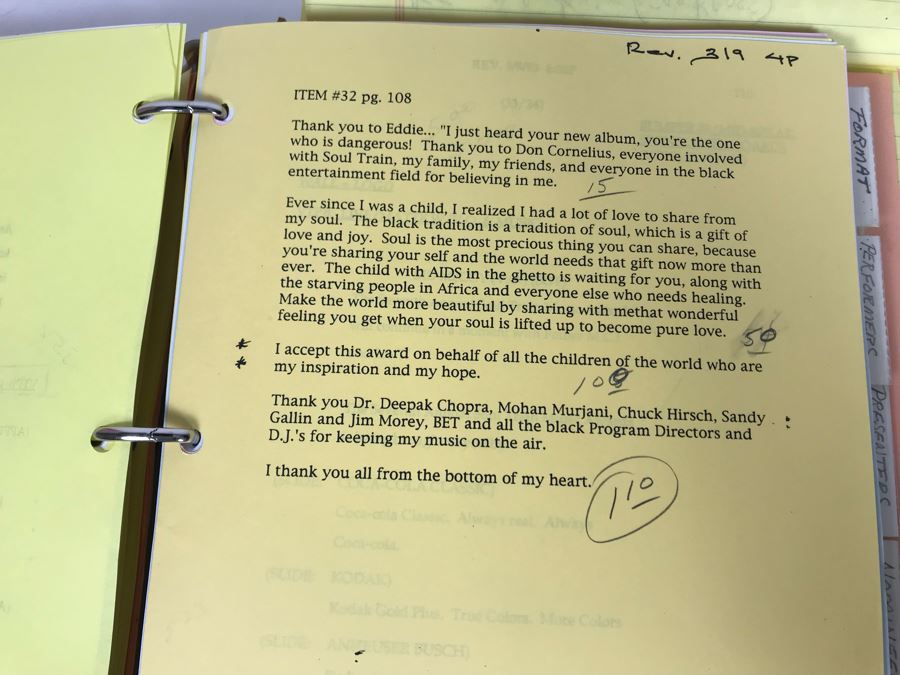 Rev. 3/9 4P
ITEM #32 pg. 108
Thank you to Eddie... "I just heard your new album, you're the one
who is dangerous! Thank you to Don Cornelius, everyone involved
with Soul Train, my family, my friends, and everyone in the black
entertainment field for believing in me.
15
Ever since I was a child, I realized I had a lot of love to share from
my soul. The black tradition is a tradition of soul, which is a gift of
love and joy. Soul is the most precious thing you can share, because
you're sharing your self and the world needs that gift now more than
ever. The child with AIDS in the ghetto is waiting for you, along with
the starving people in Africa and everyone else who needs healing.
Make the world more beautiful by sharing with methat wonderful
feeling you get when your soul is lifted up to become pure love.
* I accept this award on behalf of all the children of the world who are
* my inspiration and my hope.
Thank you Dr. Deepak Chopra, Mohan Murjani, Chuck Hirsch, Sandy
Gallin and Jim Morey, BET and all the black Program Directors and
D.J.'s for keeping my music on the air.
I thank you all from the bottom of my heart.
110
(SLIDE: COCA-COLA CLASSIC)
Coca-cola Classic. Always real. Always
Coca-cola.
(SLIDE: KODAK)
Kodak Gold Plus. True Colors. More Colors
(SLIDE: ANHEUSER BUSCH)
FORMAT
PERFORMERS
PRESENTERS